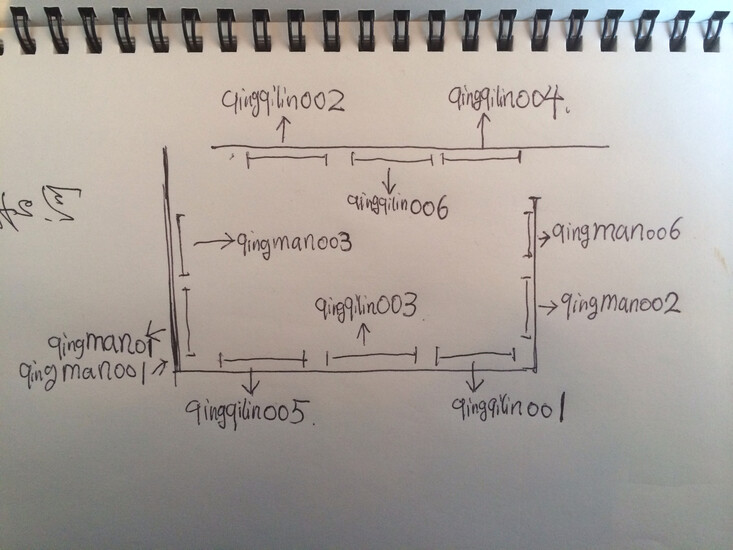 qingqilin002
qingqilin004.
qingqilin006
qingman003
qingman006
qingqilin003
qingman002
qingman01
qingman001
qingqilin005.
qingqilin001